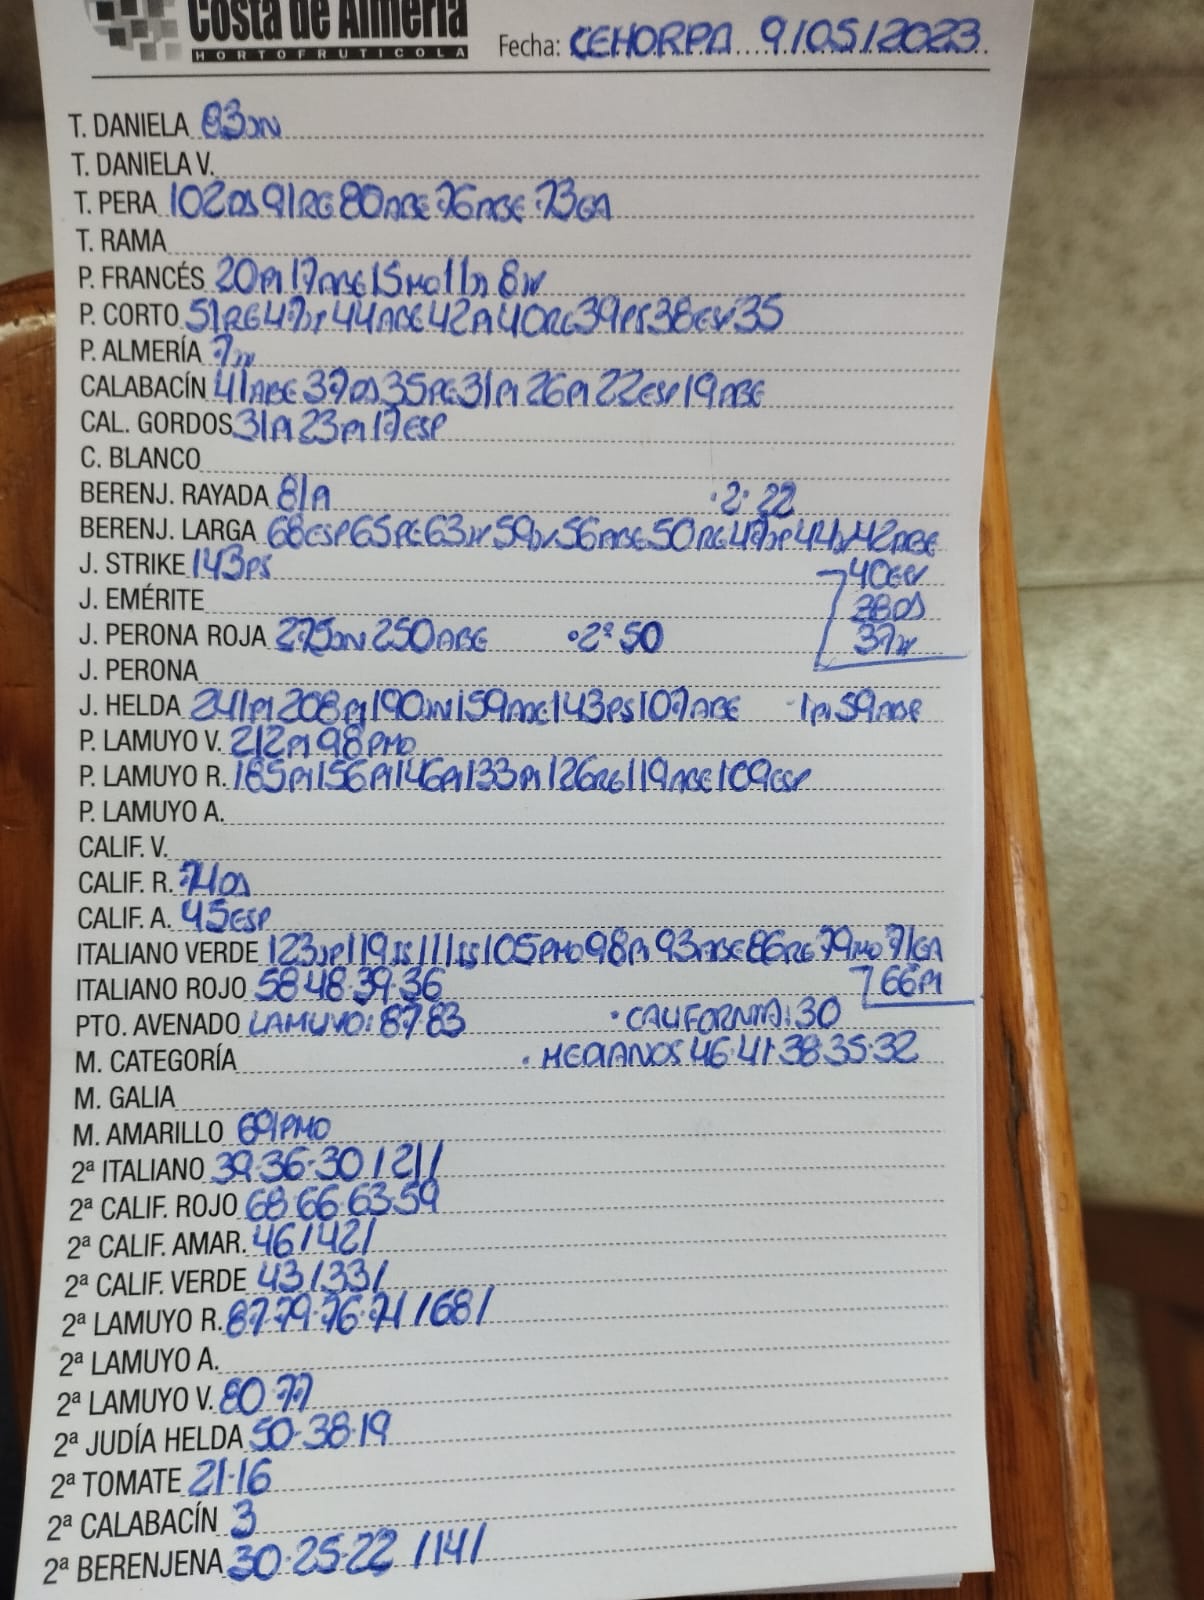 Costa de Almería
HORTOFRUTICOLA
Fecha: CEHORPA 9/05/2023
T. DANIELA 83JN
T. DANIELA V.
T. PERA 102DS 91RG 80ABE 76ABE 73GA
T. RAMA
P. FRANCÉS 20PI 17ABE 15MO 11 8
P. CORTO 51RG 47JP 44ABE 42PI 40RG 39PS 38EW 35
P. ALMERÍA 7
CALABACÍN 41ABE 37DS 35PG 31PI 26PI 22ESP 19ABE
CAL. GORDOS 31PI 23PI 17ESP
C. BLANCO
BERENJ. RAYADA 81PI · 2ª 22
BERENJ. LARGA 68ESP 65PG 63 59 56ABE 50RG 47JP 44 42ABE
J. STRIKE 143PS 40EW
J. EMÉRITE 38DS
J. PERONA ROJA 275JN 250ABE · 2ª 50 37
J. PERONA
J. HELDA 241PI 208PI 190JN 159ABE 143PS 107ABE - 1PI 59ABE
P. LAMUYO V. 212PI 98PMO
P. LAMUYO R. 185PI 156PI 146PI 133PI 126RG 119ABE 109ESP
P. LAMUYO A.
CALIF. V.
CALIF. R. 74DS
CALIF. A. 45ESP
ITALIANO VERDE 123JP 119IS 111IS 105PMO 98PI 93ABE 86RG 79MO 71GA
ITALIANO ROJO 58·48·39·36 66PI
PTO. AVENADO LAMUYO: 87·83 · CALIFORNIA: 30
M. CATEGORÍA · MEDIANOS 46·41·38·35·32
M. GALIA
M. AMARILLO 69PMO
2ª ITALIANO 39·36·30 /21/
2ª CALIF. ROJO 68·66·63·59
2ª CALIF. AMAR. 46/42/
2ª CALIF. VERDE 43/33/
2ª LAMUYO R. 87·79·76·71 /68/
2ª LAMUYO A.
2ª LAMUYO V. 80·77
2ª JUDÍA HELDA 50·38·19
2ª TOMATE 21·16
2ª CALABACÍN 3
2ª BERENJENA 30·25·22 /14/